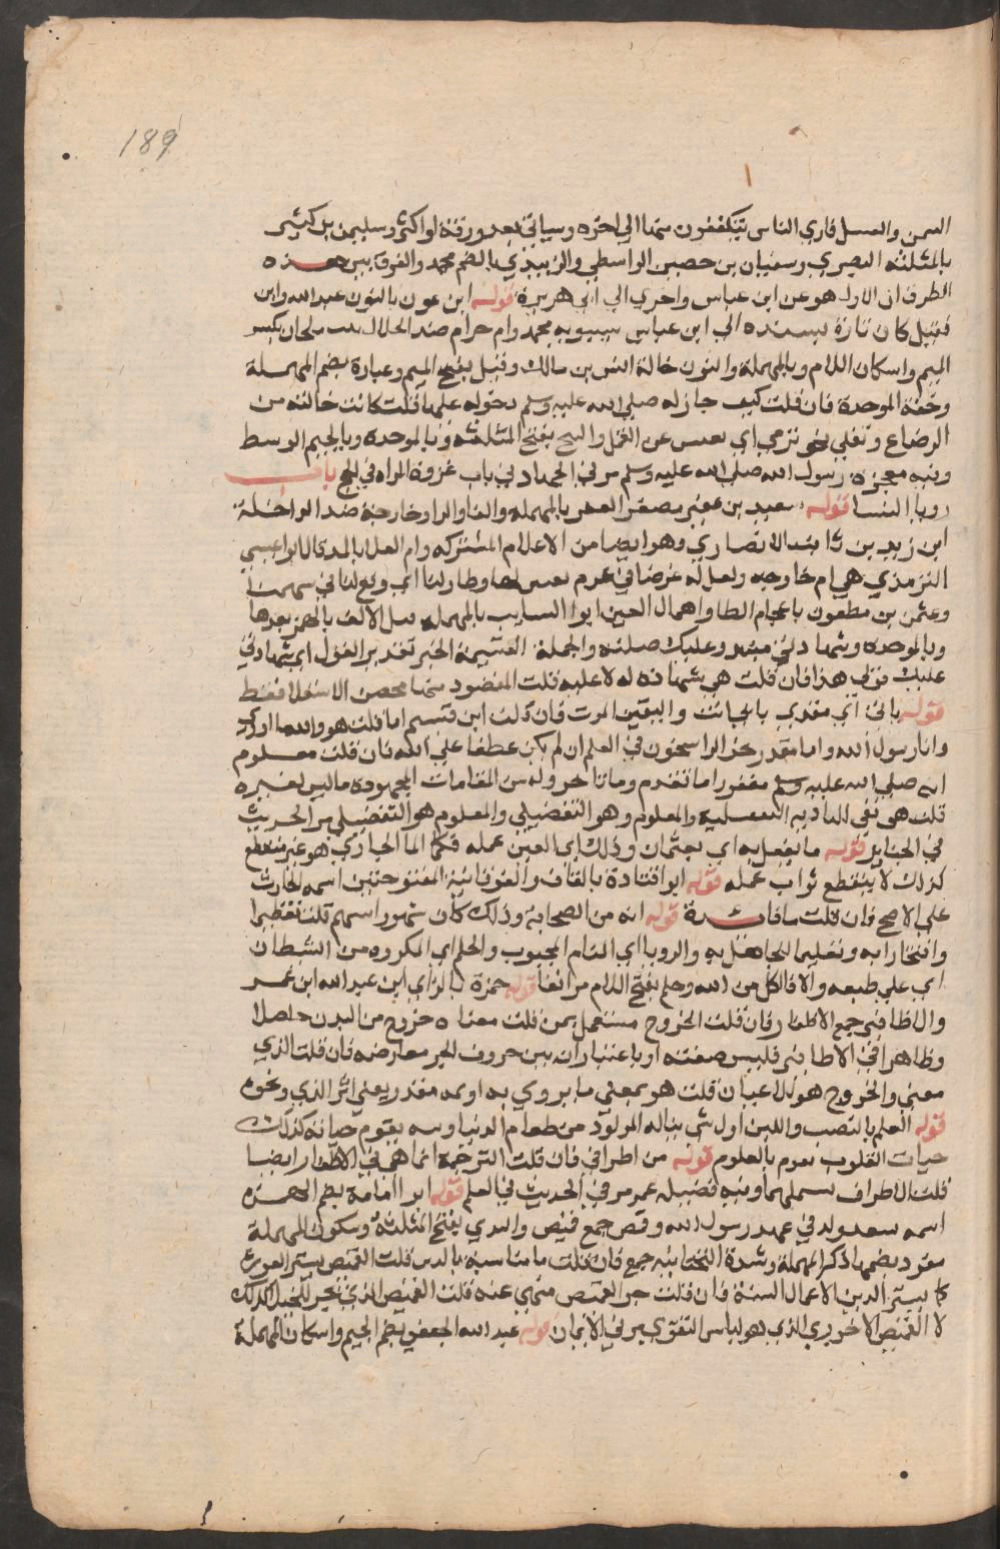 189
السمن والعسل فاري الناس يتكففون منها الي اخره وسياتي بعد ورقة لو اكثر وسليمن بن كثير
بالمثلثه البصري وسفيان بن حصين الواسطي والزبيدي بالضم محمد والفرق بين هذه
الطرق ان الاول هو عن ابن عباس واخري الي ابي هريرة قوله ابن عون بالنون عبد الله وابن
قيل كان تارة يسنده الي ابن عباس محمد وام حرام ضد الحلال بنت ملحان بكسر
الميم واسكان اللام وبالمهملة والنون خالة انس بن مالك وقيل بفتح الميم وعبادة بضم المهملة
وخفة الموحدة فان قلت كيف جاز له صلي الله عليه وسلم دخوله عليها قلت كانت خالته من
الرضاع وتفلي نحو ترمي اي تفتش عن القمل والثبج بفتح المثلثة وبالموحدة وبالجيم الوسط
وفيه معجزة رسول الله صلي الله عليه وسلم مر في الجهاد في باب غزوة المراه في البحر باب
رويا النسا قوله سعيد بن عفير مصغر العفر بالمهملة والفا والرا وخارجة ضد الداخلة
ابن زيد بن ثابت الانصاري وهو ايضا من الاعلام المشتركه وام العلا بالمد قال ابو عيسي
الترمذي هي ام خارجه ولعل له غرضا في عدم تعيينها وطار لنا اي وقع لنا في سهمنا
وعثمن بن مظعون باعجام الظا واهمال العين ابو السايب بالمهملة قبل الالف بالهمز بعدها
وبالموحدة وشهادتي مبتدا وعليك صلته والجملة القسيمة الخبر تقديره القول اي شهادتي
عليك قولي هذا فان قلت هي شهادة له لا عليه قلت المقصود منها محض الاستعلا فقط
قوله بابي اي مفدي بابي انت واليقين الموت فان قلت اين قسيم اما قلت هو والله ما ادري
وانا رسول الله واما مقدر نحو الراسخون في العلم ان لم يكن عطفا علي الله فان قلت معلوم
انه صلي الله عليه وسلم مغفور ما تقدم وما تاخر وله من المقامات المحموده ما ليس لغيره
قلت هو نفي للدراية التفصيلية والمعلوم وهو التفضيلي والمعلوم هو التفضيلي مر الحديث
في الجنايز قوله ما يفعل به اي بعثمان وذلك اي العين عمله فكما الما الجاري هو غير منقطع
كذلك لا ينقطع ثواب عمله قوله ابو قتادة بالقاف والفوقانية المفتوحتين اسمه الحارث
علي الاصح فان قلت ما فايدة قوله انه من الصحابة وذلك كان مشهور اسمهم قلت تعظيما
وافتخارا به وتعليما للجاهل به والرويا اي المنام المحبوب والحلم اي المكروه من الشيطان
اي علي طبعه والا فالكل من الله وحلم بفتح اللام مر انفا قوله حمزة بالزاي ابن عبد الله ابن عمر
والاظافير جمع الاظفار فان قلت الخروج مستعمل بمن قلت معناه خروج من البدن حاصلا
وظاهرا في الاظافير فليس صفته او باعتبار ان بين حروف الجر معارضه فان قلت الذي
معني والخروج هو للاعيان قلت هو بمعني ما يروي به او ثمه مقدر يعني اثر الذي ونحوه
قوله العلم بالنصب واللبن اول شي يناله المولود من طعام الدنيا وبه يقوم حياته كذلك
حيات القلوب تقوم بالعلوم قوله من اطرافي فان قلت الترجمة انما هي في الاظفار ايضا
قلت الاطراف يشملهما وفيه فضيله عمر مر في الحديث في العلم قوله ابو امامة بضم الهمزه
اسمه سعد ولد في عهد رسول الله وقمص جمع قميص والثدي بفتح المثلثة وسكون المهملة
مفرد بضمها ذكر المهملة وشدة التحتانيه جمع فان قلت ما مناسبة بالدين قلت القميص يستر العورة
كما يستر الدين الاعمال السيئة فان قلت جر القميص منهي عنه قلت القميص الذي يجر للخيلا كذلك
لا القميص الاخروي الذي هو لباس التقوي مر في الايمان قوله عبد الله الجعفي بضم الجيم واسكان المهملة